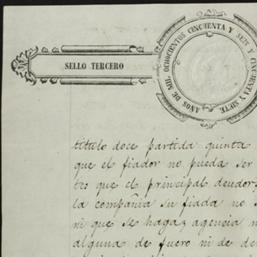 SELLO TERCERO
AÑOS DE MIL OCHOCIENTOS CINCUENTA Y SEIS Y CINCUENTA Y SIETE
título doce partida quinta
que el fiador no pueda ser
tro que el principal deudor
la compañia su fiada no s
ni que se haga agencia n
alguna de fuero ni de de